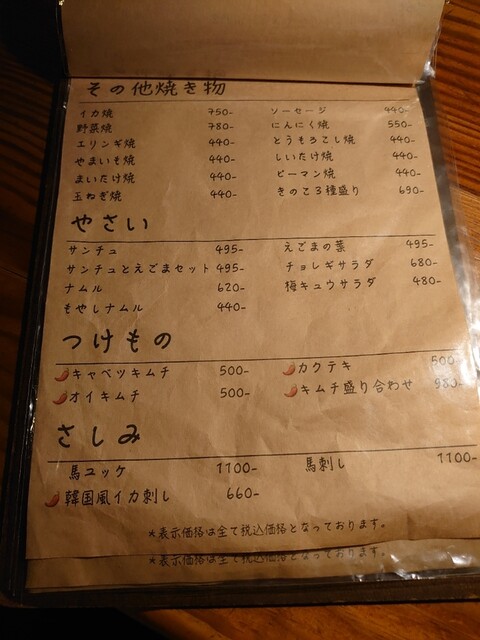 その他焼き物
イカ焼 750-
野菜焼 780-
エリンギ焼 440-
やまいも焼 440-
まいたけ焼 440-
玉ねぎ焼 440-
ソーセージ 440-
にんにく焼 550-
とうもろこし焼 440-
しいたけ焼 440-
ピーマン焼 440-
きのこ3種盛り 690-
やさい
サンチュ 495-
サンチュとえごまセット 495-
ナムル 620-
もやしナムル 440-
えごまの葉 495-
チョレギサラダ 680-
梅キュウサラダ 480-
つけもの
キャベツキムチ 500-
オイキムチ 500-
カクテキ 500-
キムチ盛り合わせ 980-
さしみ
馬ユッケ 1100-
韓国風イカ刺し 660-
馬刺し 1100-
*表示価格は全て税込価格となっております。
*表示価格は全て税込価格となっております。